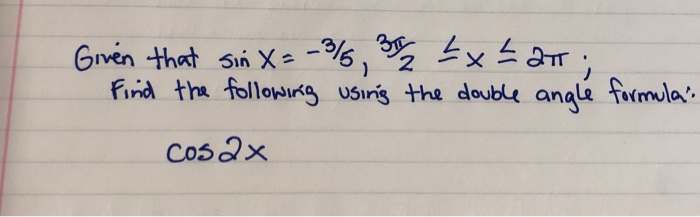 Given that sin x = -3/5, 3π/2 ≤ x ≤ 2π;
Find the following using the double angle formula:
cos2x